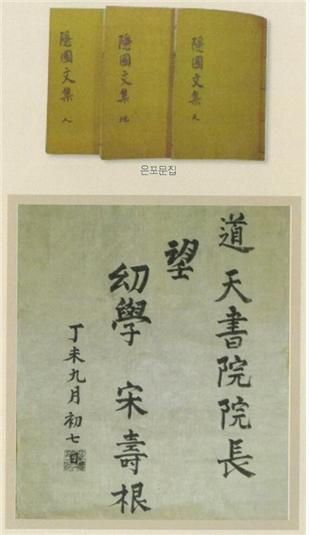 隱圃文集 天
隱圃文集 地
隱圃文集 人
은포문집
道天書院院長
望
幼學 宋壽根
丁未九月初七日